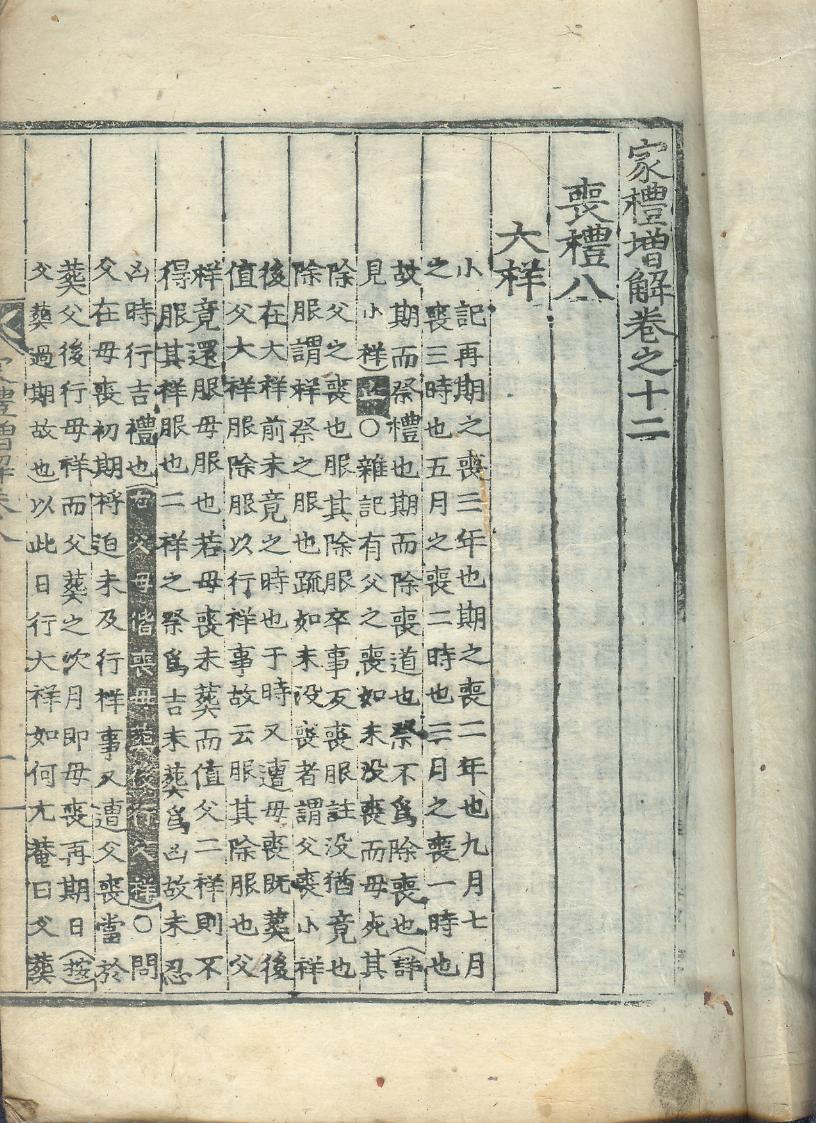 家禮增解卷之十二
喪禮八
大祥
小記再期之喪三年也期之喪二年也九月七月
之喪三時也五月之喪二時也三月之喪一時也
故期而祭禮也期而除喪道也祭不爲除喪也(詳
見小祥)○雜記有父之喪如未没喪而母死其
除父之喪也服其除服卒事反喪服註没猶竟也
除服謂祥祭之服也疏如未没喪者謂父喪小祥
後在大祥前未竟之時也于時又遭母喪既葬後
值父大祥服除服以行祥事故云服其除服也父
祥竟還服母服也若母喪未葬而值父二祥則不
得服其祥服也二祥之祭爲吉未葬爲凶故未忍
凶時行吉禮也(右父母偕喪母葬後行父祥)○問
父在母喪初期將迫未及行祥事又遭父喪當於
葬父後行母祥而父葬之次月即母喪再期日(按)
父葬過期故也以此日行大祥如何尤菴曰父葬